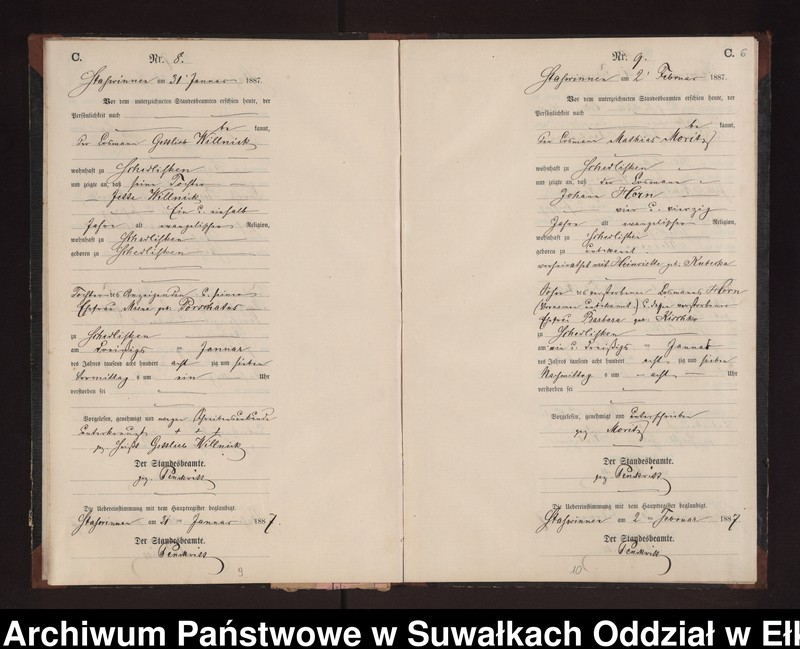 C. Nr. 8.
am 31t Januar 1887.
Vor dem unterzeichneten Standesbeamten erschien heute, der
Persönlichkeit nach
be kannt,
der Losmann Gottlieb Willnick
wohnhaft zu Schedlisken
und zeigte an, daß seine Tochter
Jette Willnick
Ein u. einhalb
Jahre alt evangelischer Religion,
wohnhaft zu Schedlisken
geboren zu Schedlisken
Tochter des Anzeigenden u. seiner
Ehefrau geb.
zu Schedlisken
am dreißigs ten Januar
des Jahres tausend acht hundert acht zig und sieben
Vormittag s um ein Uhr
verstorben sei
Vorgelesen, genehmigt und wegen
+ + +
gez. Gottlieb Willnick
Der Standesbeamte.
gez.
Die Uebereinstimmung mit dem Hauptregister beglaubigt.
am 31 ten Januar 1887
Der Standesbeamte.
9
Nr. 9. C. 6
am 2t Februar 1887.
Vor dem unterzeichneten Standesbeamten erschien heute, der
Persönlichkeit nach
be kannt,
der Losmann Mathias Moritz
wohnhaft zu Schedlisken
und zeigte an, daß der Losmann
Johann Horn
vier u. vierzig
Jahre alt evangelischer Religion,
wohnhaft zu Schedlisken
geboren zu unbekannt
verheirathet mit Heinriette geb.
Sohn des verstorbenen Losmanns Horn
(Vorname unbekannt) u. dessen verstorbener
Ehefrau Barbara geb.
zu Schedlisken
am ein u. dreißigs ten Januar
des Jahres tausend acht hundert acht zig und sieben
Nachmittag s um acht Uhr
verstorben sei
Vorgelesen, genehmigt und unterschrieben
gez. Moritz
Der Standesbeamte.
gez.
Die Uebereinstimmung mit dem Hauptregister beglaubigt.
am 2 ten Februar 1887
Der Standesbeamte.
10
Archiwum Państwowe w Suwałkach Oddział w Ełk